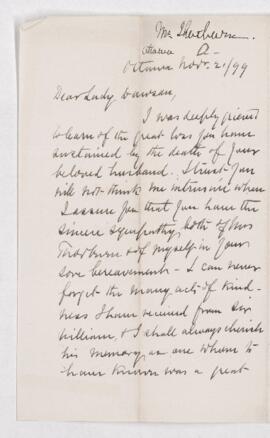 Mr Thorburn.
Ottawa A-
Ottawa Nov. 21/99
Dear Lady Dawson,
I was deeply grieved
to learn of the great loss you have
sustained by the death of your
beloved husband. I trust you
will not think me intrusive when
I assure you that you have the
sincere sympathy both of Mrs
Thorburn & of myself in your
sore bereavement - I can never
forget the many acts of kind-
ness I have received from Sir
William, & I shall always cherish
his memory as one whom to
have known was a great